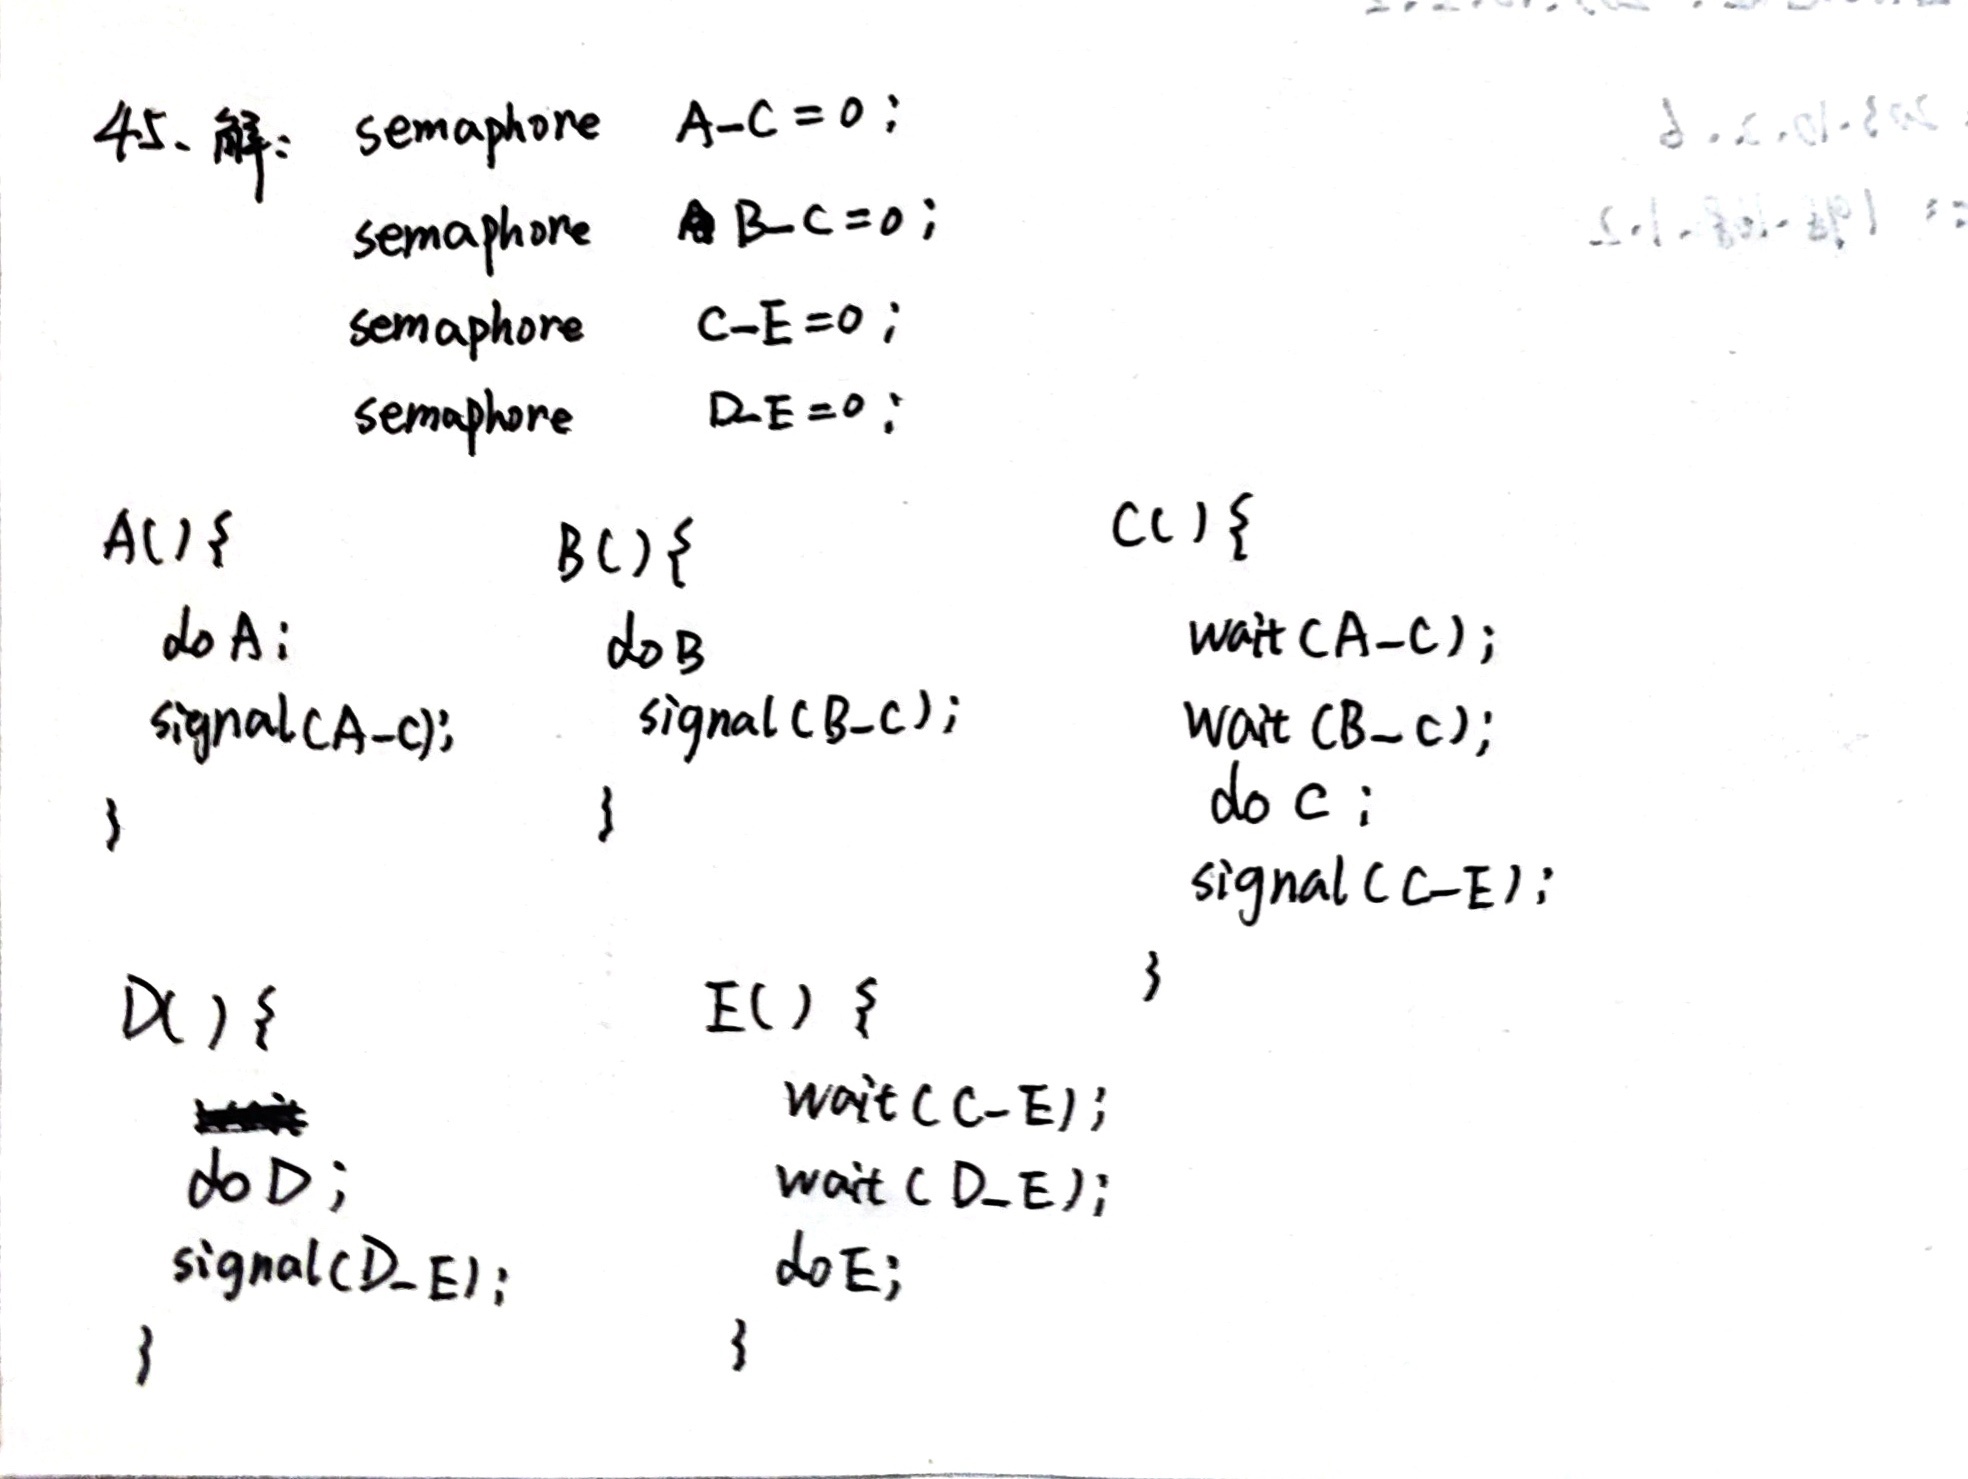 45. 解: semaphore A_C = 0;
semaphore B_C = 0;
semaphore C_E = 0;
semaphore D_E = 0;
A(){
do A;
signal(A_C);
}
B(){
do B
signal(B_C);
}
C(){
wait(A_C);
wait(B_C);
do C;
signal(C_E);
}
D(){
do D;
signal(D_E);
}
E(){
wait(C_E);
wait(D_E);
do E;
}